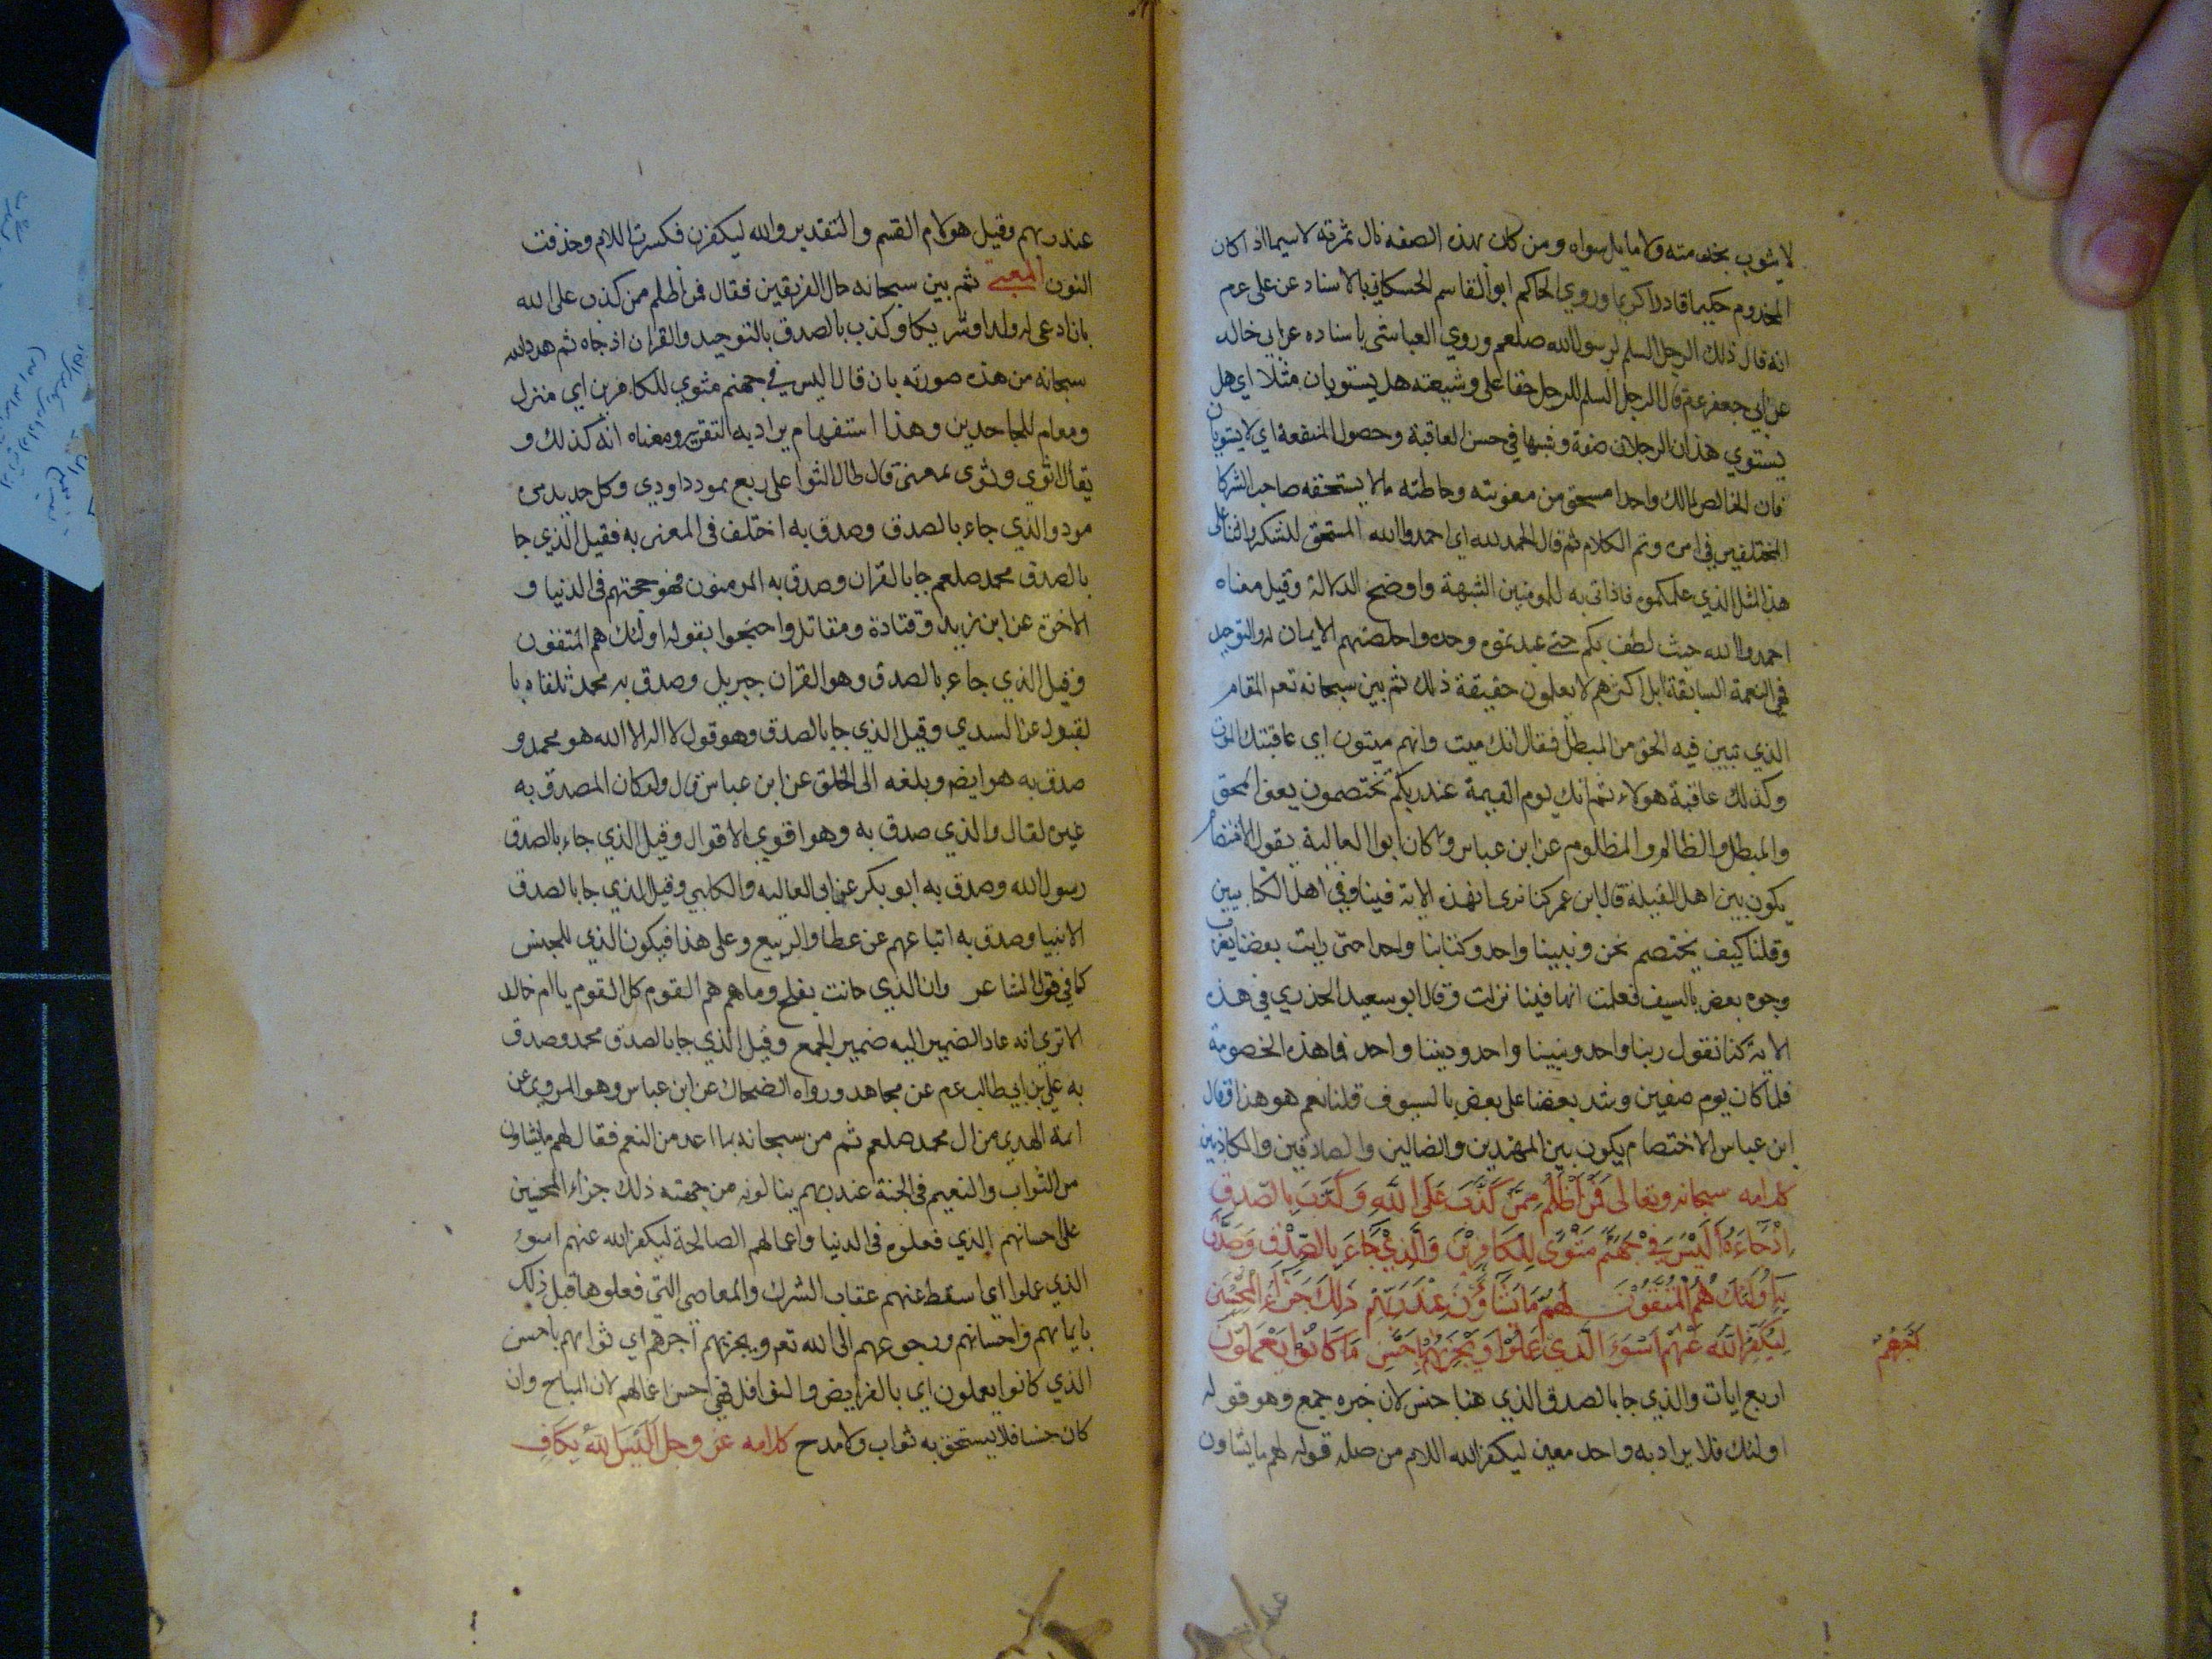 لا يشوب بخدمته ولا مايل سواه ومن كان بهذه الصفه نال ثمرته لاسيما اذا كان
المخدوم حكيما قادرا كريما وروي الحاكم ابوالقاسم الحسكاني بالاسناد عن على عم
انه قال ذلك الرجل السلم لرسول الله صلعم وروي العياشى باسناده عن ابي خالد
عن ابي جعفر عم قال الرجل السلم للرجل حقا على وشيعته هل يستويان مثلا اي هل
يستوي هذان الرجلان صفة وشبها في حسن العاقبة وحصول المنفعة اي لا يستويان
فان الخالص لمالك واحد مستحق من معونته وحاطته ما لا يستحقه صاحب الشركا
المختلفين في امره وتم الكلام ثم قال الحمد لله اي احمدوا الله المستحق للشكر والثنا على
هذا المثل الذي علمكموه فاذاتى به للمومنين الشبهة واوضح الدلالة وقيل معناه
احمدوا الله حيث لطف بكم حتى عبدتموه وحده واخلصتم الايمان له والتوحيد
فهى النعمة السابقة بل اكثرهم لا يعلمون حقيقة ذلك ثم بين سبحانه تعم المقام
الذي تبين فيه الحق من المبطل فقال انك ميت وانهم ميتون اي عاقبتك الموت
وكذلك عاقبة هولاء ثم انك يوم القيمة عند ربكم تختصمون يعنى المحق
والمبطل والظالم والمظلوم عن ابن عباس وكان ابوا العالية يقول الاختصام
يكون بين اهل القبلة قال ابن عمر كنا نرى ان هذه الاية فينا وفي اهل الكتابيين
وقلنا كيف يختصم نحن ونبينا واحد وكتابنا واحد حتى رايت بعضنا يضرب
وجوه بعض بالسيف فعلمت انها فينا نزلت وقال ابو سعيد الخدري في هذه
الاية كنا نقول ربنا واحد ونبينا واحد وديننا واحد فما هذه الخصومة
فلما كان يوم صفين وشد بعضنا على بعض بالسيوف قلنا نعم هو هذا وقال
ابن عباس الاختصام يكون بين المهتدين والضالين والصادقين والكاذبين
كلامه سبحانه وتعالى فَمَنْ أَظْلَمُ مِمَّنْ كَذَبَ عَلَى اللَّهِ وَكَذَّبَ بِالصِّدْقِ
اِذْ جَاءَهُ أَلَيْسَ فِي جَهَنَّمَ مَثْوًى لِلْكَافِرِيْنَ وَالَّذِيْ جَاءَ بِالصِّدْقِ وَصَدَّقَ
بِهِ أُولَئِكَ هُمُ الْمُتَّقُوْنَ لَهُمْ مَا يَشَاؤُنَ عِنْدَ رَبِّهِمْ ذَلِكَ جَزَاءُ الْمُحْسِنِيْنَ
لِيُكَفِّرَ اللَّهُ عَنْهُمْ اَسْوَءَ الَّذِيْ عَمِلُوْا وَيَجْزِيَهُمْ بِاَحْسَنِ مَا كَانُوْا يَعْمَلُوْنَ
اجرهم
اربع ايات والذي جا بالصدق الذي هنا جنس لان خبره جمع وهو قوله
اولئك فلا يراد به واحد معين ليكفر الله اللام من صله قوله لهم ما يشاون
عند ربهم
عند ربهم وقيل هو لام القسم والتقدير والله ليكفرن فكسرت اللام وحذفت
النون المعنى ثم بين سبحانه حال الفريقين فقال فمن أظلم ممن كذب على الله
بان ادعى له ولدا وشريكا وكذب بالصدق بالتوحيد والقران اذ جاه ثم هدد الله
سبحانه من هذه صورته بان قال اليس في جهنم مثوى للكافرين اي منزل
ومقام للجاحدين وهذا استفهام يراد به التقرير ومعناه انه كذلك و
يقال اثوى وثوى بمعنى قال طال الثوا على ربع بمودداودي وكل جديد مره
مود والذي جاء بالصدق وصدق به اختلف فى المعنى به فقيل الذي جا
بالصدق محمد صلعم جا بالقران وصدق به المومنون فهو حجتهم فى الدنيا و
الاخرة عن ابن زيد وقتادة ومقاتل واحتجوا بقوله اولئك هم المتقون
وقيل الذي جاء بالصدق وهو القران جبريل وصدق به محمد تلقاه با
لقبول عن السدي وقيل الذي جا بالصدق وهو قول لا اله الا الله هو محمد و
صدق به هو ايضم وبلغه الى الخلق عن ابن عباس قال ولو كان المصدق به
غيره لقال والذي صدق به وهو اقوي الاقوال وقيل الذي جاء بالصدق
رسول الله وصدق به ابو بكر عن ابى العاليه والكلبي وقيل الذي جا بالصدق
الانبيا وصدق به اتباعهم عن عطا والربيع وعلى هذا فيكون الذي للجنس
كما في قول الشاعر وان الذي حانت بفلج دماهم هم القوم كل القوم يا ام خالد
الا ترى انه عاد الضمير اليه ضمير الجمع وقيل الذي جا بالصدق محمد وصدق
به علي بن ابي طالب عم عن مجاهد ورواه الضحاك عن ابن عباس وهو المروي عن
ائمة الهدى من ال محمد صلعم ثم من سبحانه بما اعد من النعم فقال لهم ما يشاون
من الثواب والنعيم فى الجنة عند ربهم ينالونه من جهته ذلك جزاء المحسنين
على احسانهم الذي فعلوه فى الدنيا واعمالهم الصالحة ليكفر الله عنهم اسوء
الذي عملوا اى اسقط عنهم عقاب الشرك والمعاصى التى فعلوها قبل ذلك
بايمانهم واحسانهم ورجوعهم الى الله تعم ويجزيهم اجرهم اي ثوابهم باحسن
الذي كانوا يعملون اي بالفرايض والنوافل فهى احسن اعمالهم لان المباح وان
كان حسنا فلا يستحق به ثواب ولا مدح كلامه عز وجل اَلَيْسَ اللَّهُ بِكَافٍ